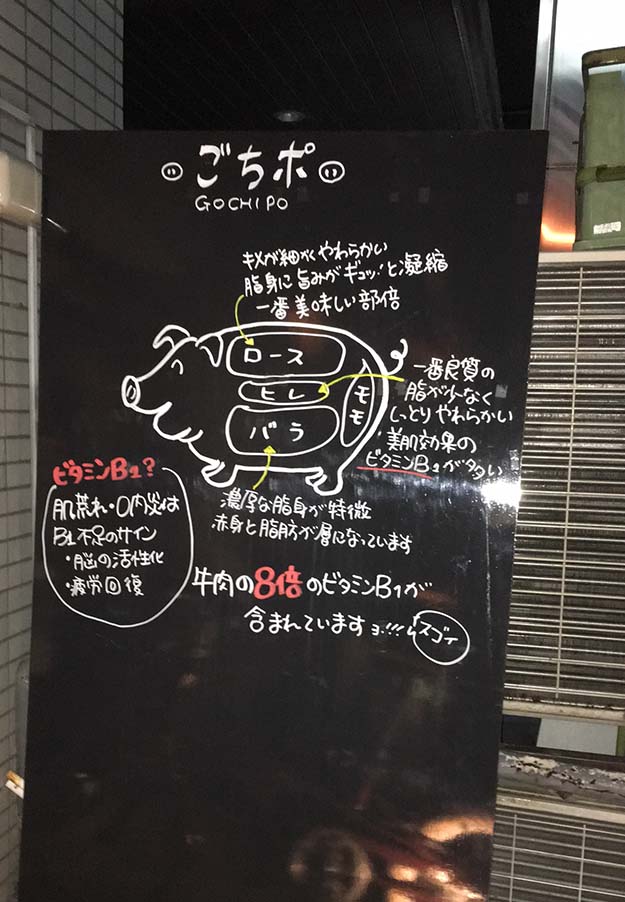 ごちポ
GOCHIPO
キメが細かくやわらかい
脂身に旨みがギュッ!と凝縮
一番美味しい部倍
ロース
ヒレ
バラ
モモ
一番良質の
脂が少なく
しっとりやわらかい
美肌効果の
ビタミンB1が多い
濃厚な脂身が特徴
赤身と脂肪が層になっています
ビタミンB1?
肌荒れ・口内炎は
B1不足のサイン
・脳の活性化
・疲労回復
牛肉の8倍のビタミンB1が
含まれていますョ!!!
スゴイ